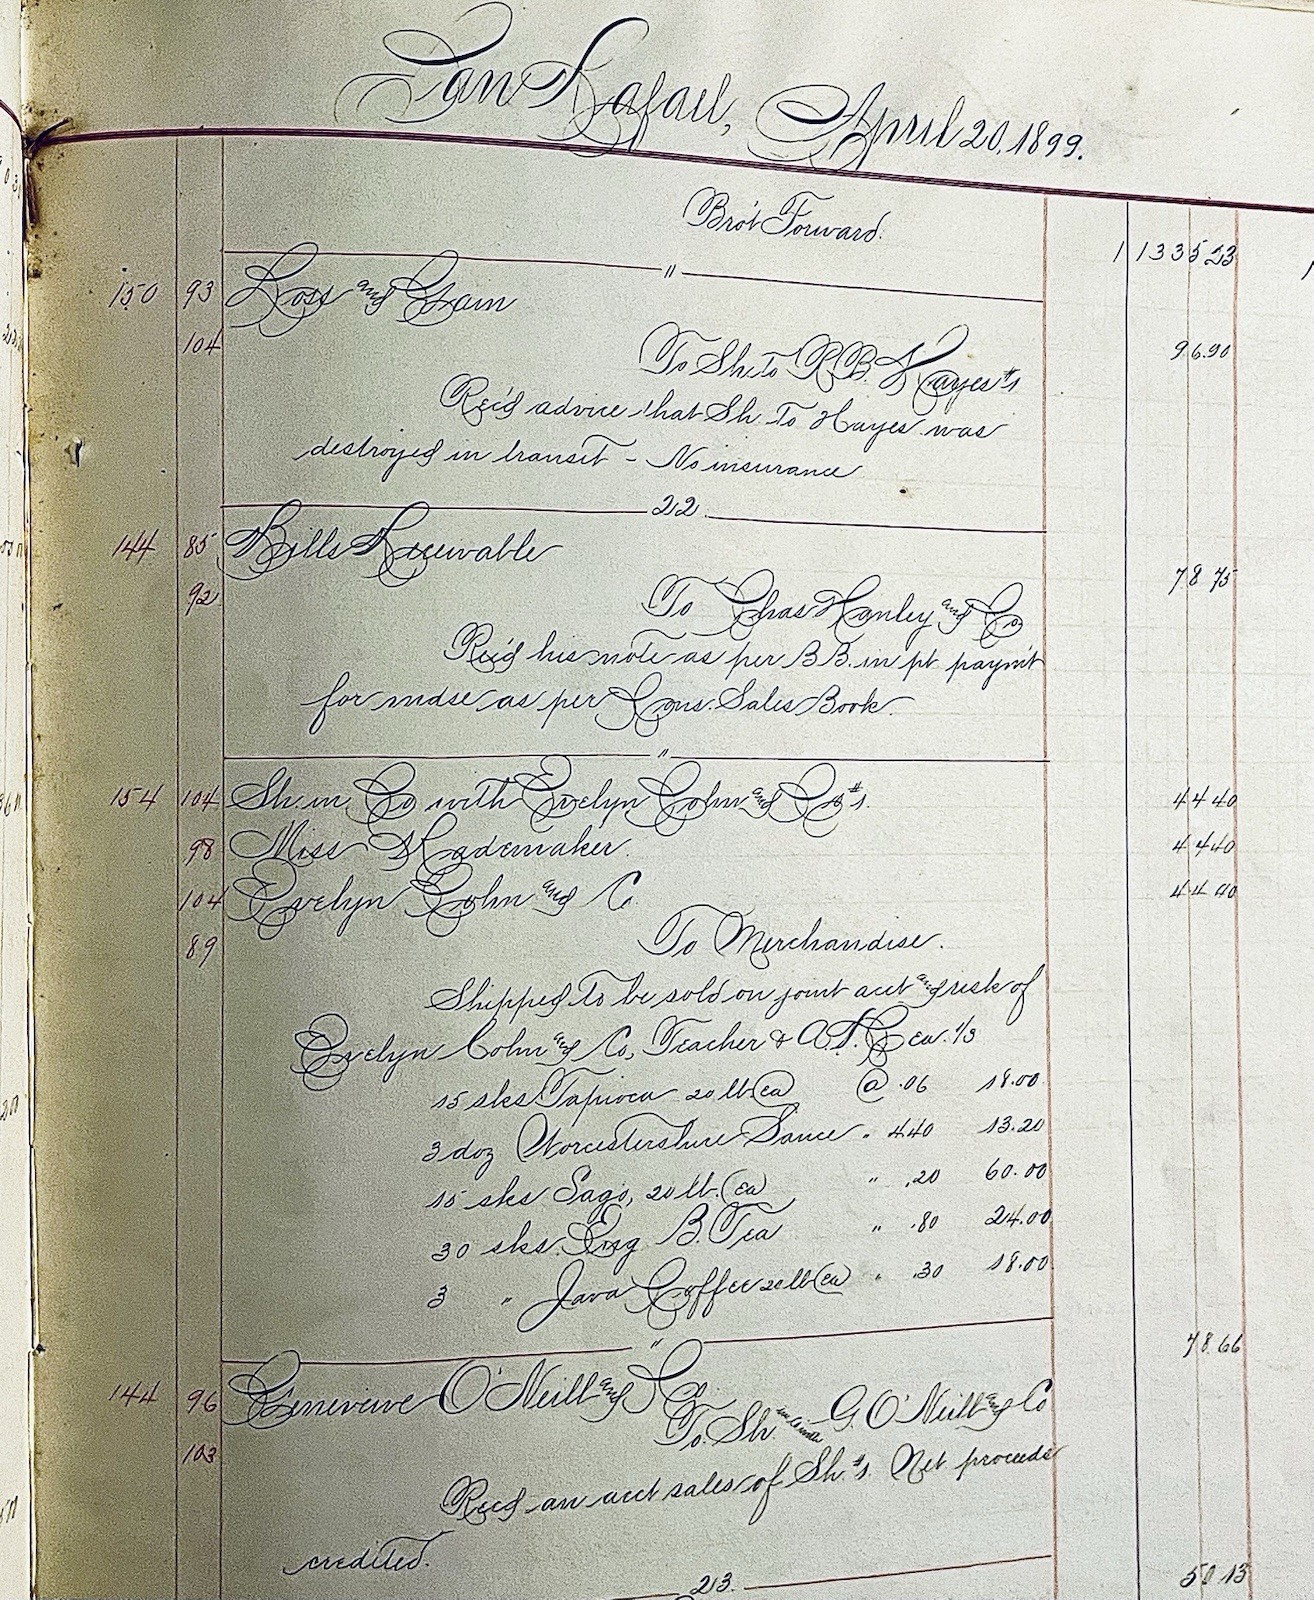 San Rafael, April 20, 1899.
Bro't Forward. 1 1335 23
"
150 93 Loss and Gain 96.90
104 To Sh. to R.B. Hayes #1
Rec'd advice that Sh. To Hayes was
destroyed in transit - No insurance
22
144 85 Bills Receivable 78 75
92 To Chas Hanley and Co
Rec'd his note as per B B. in pt paym't
for mdse as per Cons. Sales Book.
"
154 104 Sh. in Co with Evelyn Cohn and Co's #1. 44 40
98 Miss Rademaker. 44 40
104 Evelyn Cohn and Co 44 40
89 To Merchandise.
Shipped to be sold on joint acct and risk of
Evelyn Cohn and Co, Teacher & A.S.C ea. 1/3
15 sks Tapioca 20 lb ea @ .06 18.00
3 doz Worcestershire Sauce " 4.40 13.20
15 sks Sago, 20 lb. ea " .20 60.00
30 sks. Eng B. Tea " .80 24.00
3 " Java Coffee 20 lb ea " .30 18.00
"
144 96 Genevieve O'Neill and Co. 78.66
103 To Sh. in Co with G. O'Neill and Co
Rec'd an acct sales of Sh. #1. Net proceeds
credited.
23. 50 13